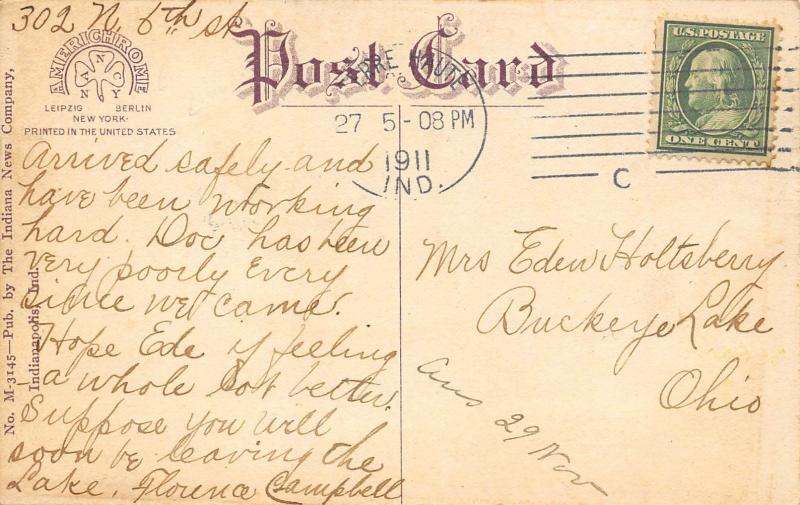 302 N. 6th st
AMERICHROME
ANCNY
LEIPZIG BERLIN
NEW YORK
PRINTED IN THE UNITED STATES
Post Card
TERRE HAUTE
27 5-08 PM
1911
IND.
C
U.S. POSTAGE
ONE CENT
No. M-3145—Pub. by The Indiana News Company,
Indianapolis, Ind.
Arrived safely and
have been working
hard. Doc has been
very poorly every
since we came.
Hope Ede if feeling
a whole lot better.
Suppose you will
soon be leaving the
Lake. Florence Campbell
Mrs Eden Holtsberry
Buckeye Lake
Ohio
Ans 29 Nov